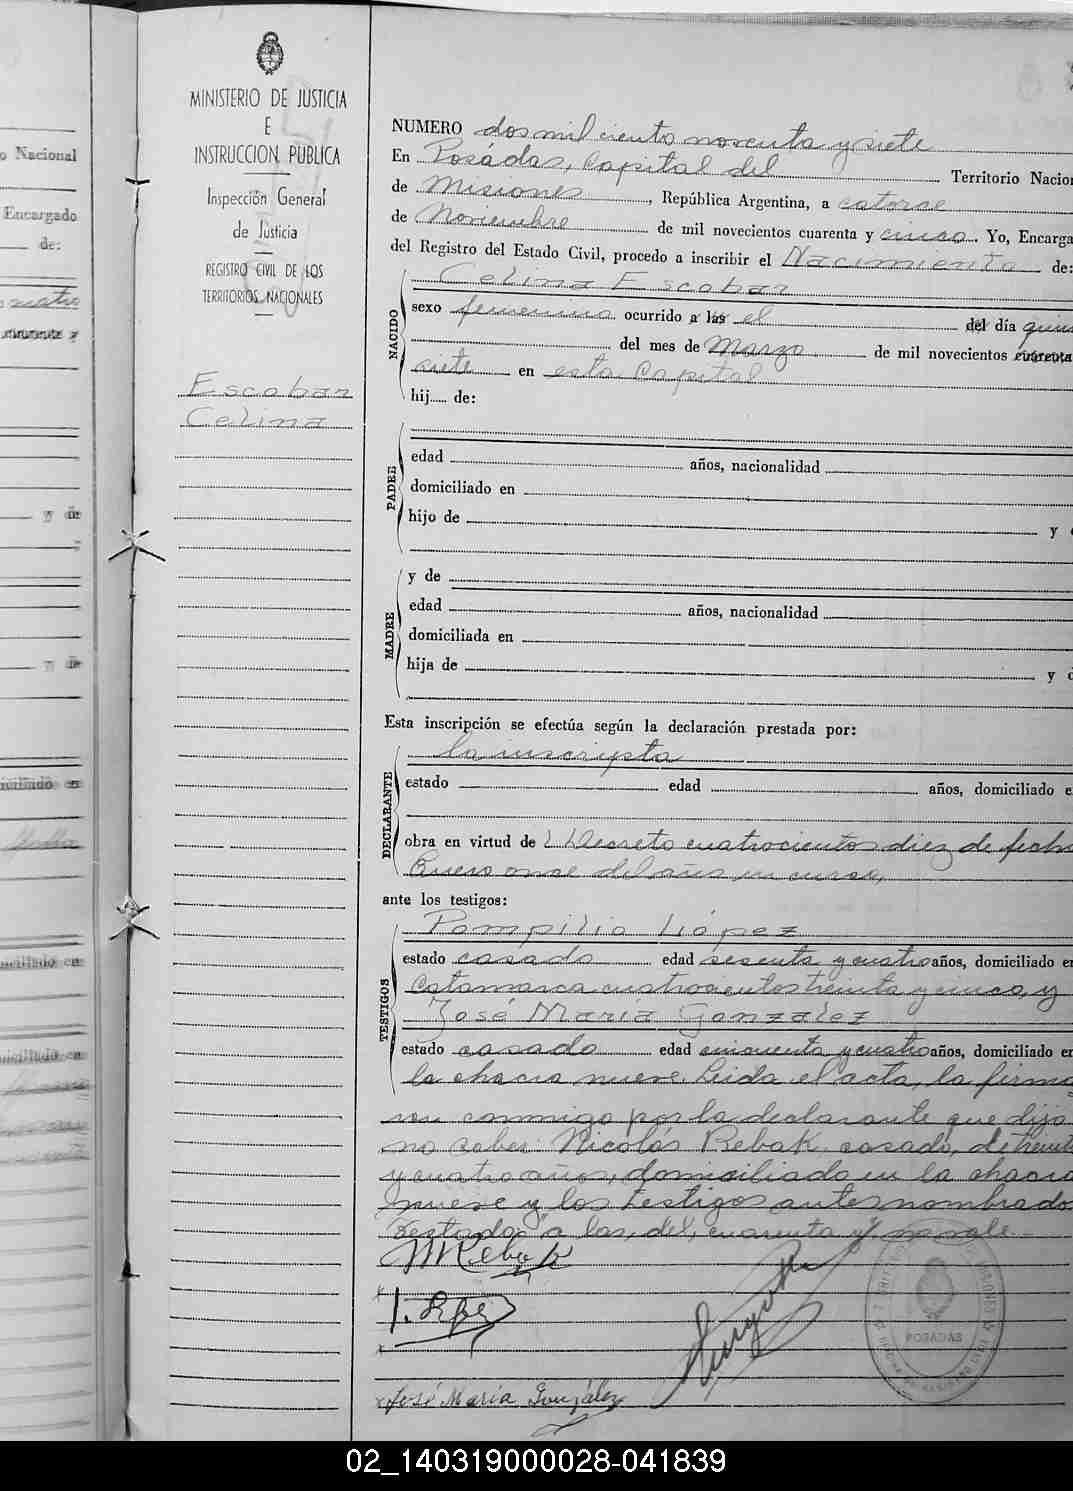 MINISTERIO DE JUSTICIA
E
INSTRUCCION PUBLICA
Inspección General
de Justicia
REGISTRO CIVIL DE LOS
TERRITORIOS NACIONALES
Escobar
Celina
o Nacional
Encargado
de:
cuatro
y de
y de
NUMERO dos mil ciento noventa y siete
En Posádas, Capital del Territorio Nacion
de Misiones, República Argentina, a catorce
de Noviembre de mil novecientos cuarenta y cinco. Yo, Encarga
del Registro del Estado Civil, procedo a inscribir el Nacimiento de:
NACIDO
Celina Escobar
sexo femenino ocurrido a las el del día quin
del mes de Marzo de mil novecientos cuarenta
siete en esta Capital
hij de:
PADRE
edad años, nacionalidad
domiciliado en
hijo de y d
MADRE
y de
edad años, nacionalidad
domiciliada en
hija de y d
Esta inscripción se efectúa según la declaración prestada por:
DECLARANTE
la inscripta
estado edad años, domiciliado e
obra en virtud de l Decreto cuatrocientos diez de fecha
Enero once del año en curso,
ante los testigos:
TESTIGOS
Pompilio López
estado casado edad sesenta y cuatro años, domiciliado en
Catamarca cuatrocientos treinta y cinco, y
José María González
estado casado edad cincuenta y cuatro años, domiciliado en
la chacra nueve. Leida el acta, la firma
ron conmigo por la declarante que dijo
no saber Nicolás Rebak, casado, de treinta
y cuatro años, domiciliado en la chacra
nueve y los testigos antes nombrados
Testado: "a las, del, cuarenta y" no vale
José María González
POSADAS
02_140319000028-041839